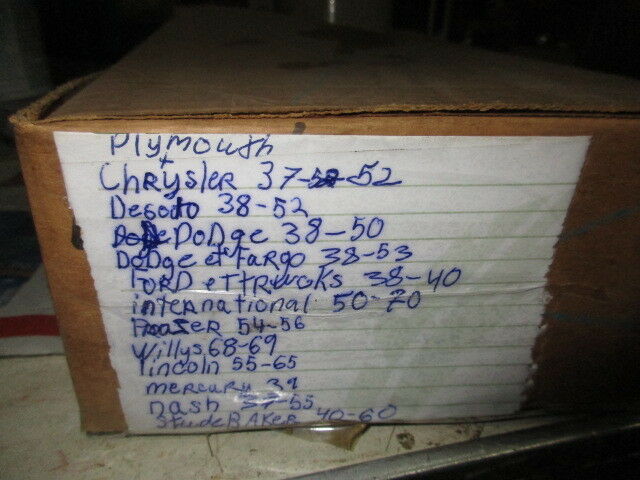 Plymouth
+
Chrysler 37-52
Desoto 38-52
Dodge 38-50
Dodge et Fargo 38-53
Ford et trucks 38-40
international 50-70
Frazer 54-56
Willys 68-69
lincoln 55-65
mercury 39
nash 37-55
StudeBAKer 40-60